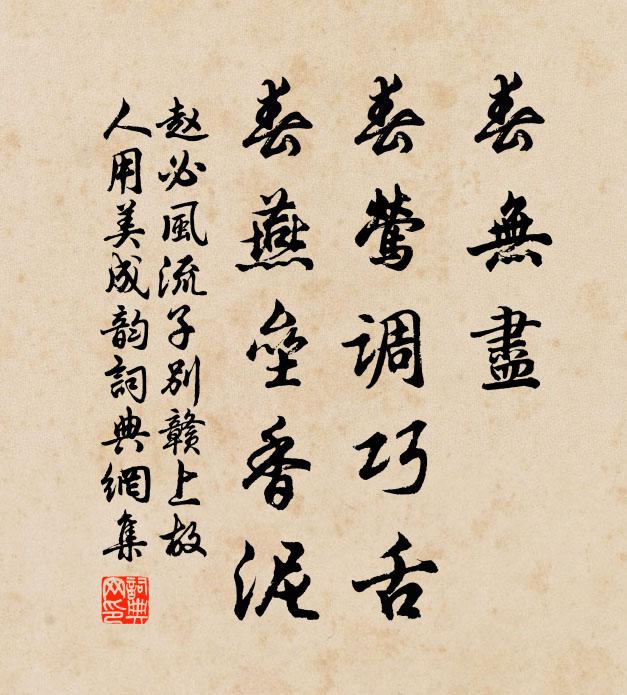 春無盡
春鶯調巧舌
春燕壘香泥
赵必風流子别贛上故
人用美成韵詞典網集
詞典網印